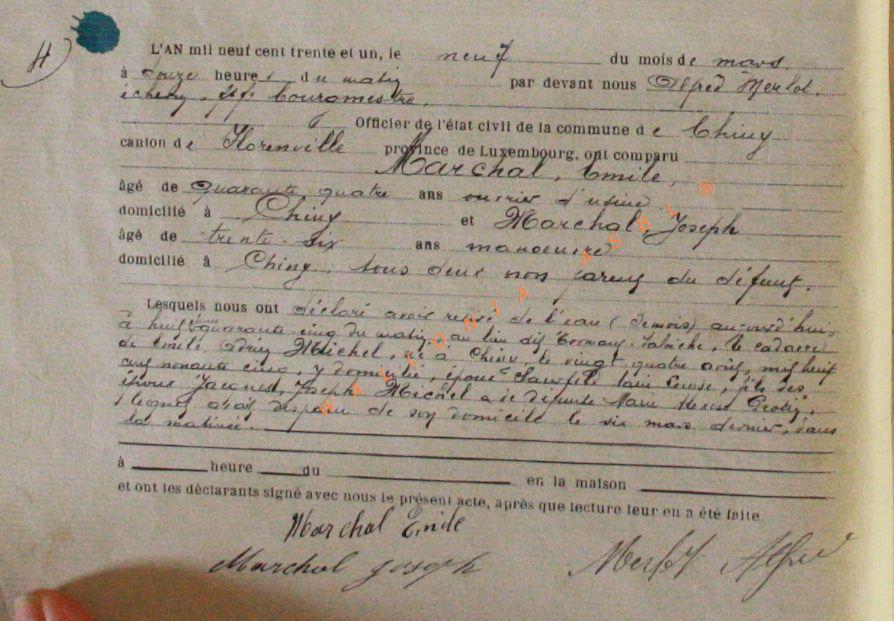 4
L'AN mil neuf cent trente et un, le neuf du mois de mars.
à douze heures du matin par devant nous Alfred Merlot,
échevin, ff. bourgmestre,
Officier de l'état civil de la commune de Chiny
canton de Florenville province de Luxembourg, ont comparu
Marchal, Emile,
âgé de quarante quatre ans ouvrier d'usine
domicilié à Chiny et Marchal, Joseph
âgé de trente-six ans manoeuvre
domicilié à Chiny, tous deux non parents du défunt.
Lesquels nous ont déclaré avoir retiré de l'eau (Semois) aujourd'hui,
à huit heures quarante-cinq du matin, au lieu dit le cadavre
de Emile, Michel, né à Chiny, le vingt quatre août, mil huit
cent nonante cinq, y domicilié, époux fils des
époux Jacques, Joseph Michel et de défunte Marie
lequel avait disparu de son domicile le six mars dernier, dans
la matinée.
à heure du en la maison
et ont les dèclarants signé avec nous le présent acte, après que lecture leur en a été faite.
Marchal Emile
Marchal Joseph Merlot Alfred
WALLONIA ASBL ®